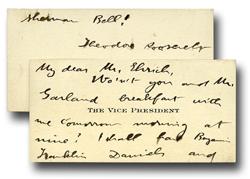 Sherman Bell!
Theodore Roosevelt
My dear Mr. Ehrich,
Won't you and Mr.
Garland breakfast with
THE VICE PRESIDENT
me tomorrow morning at
nine? I shall have
Franklin Daniels and